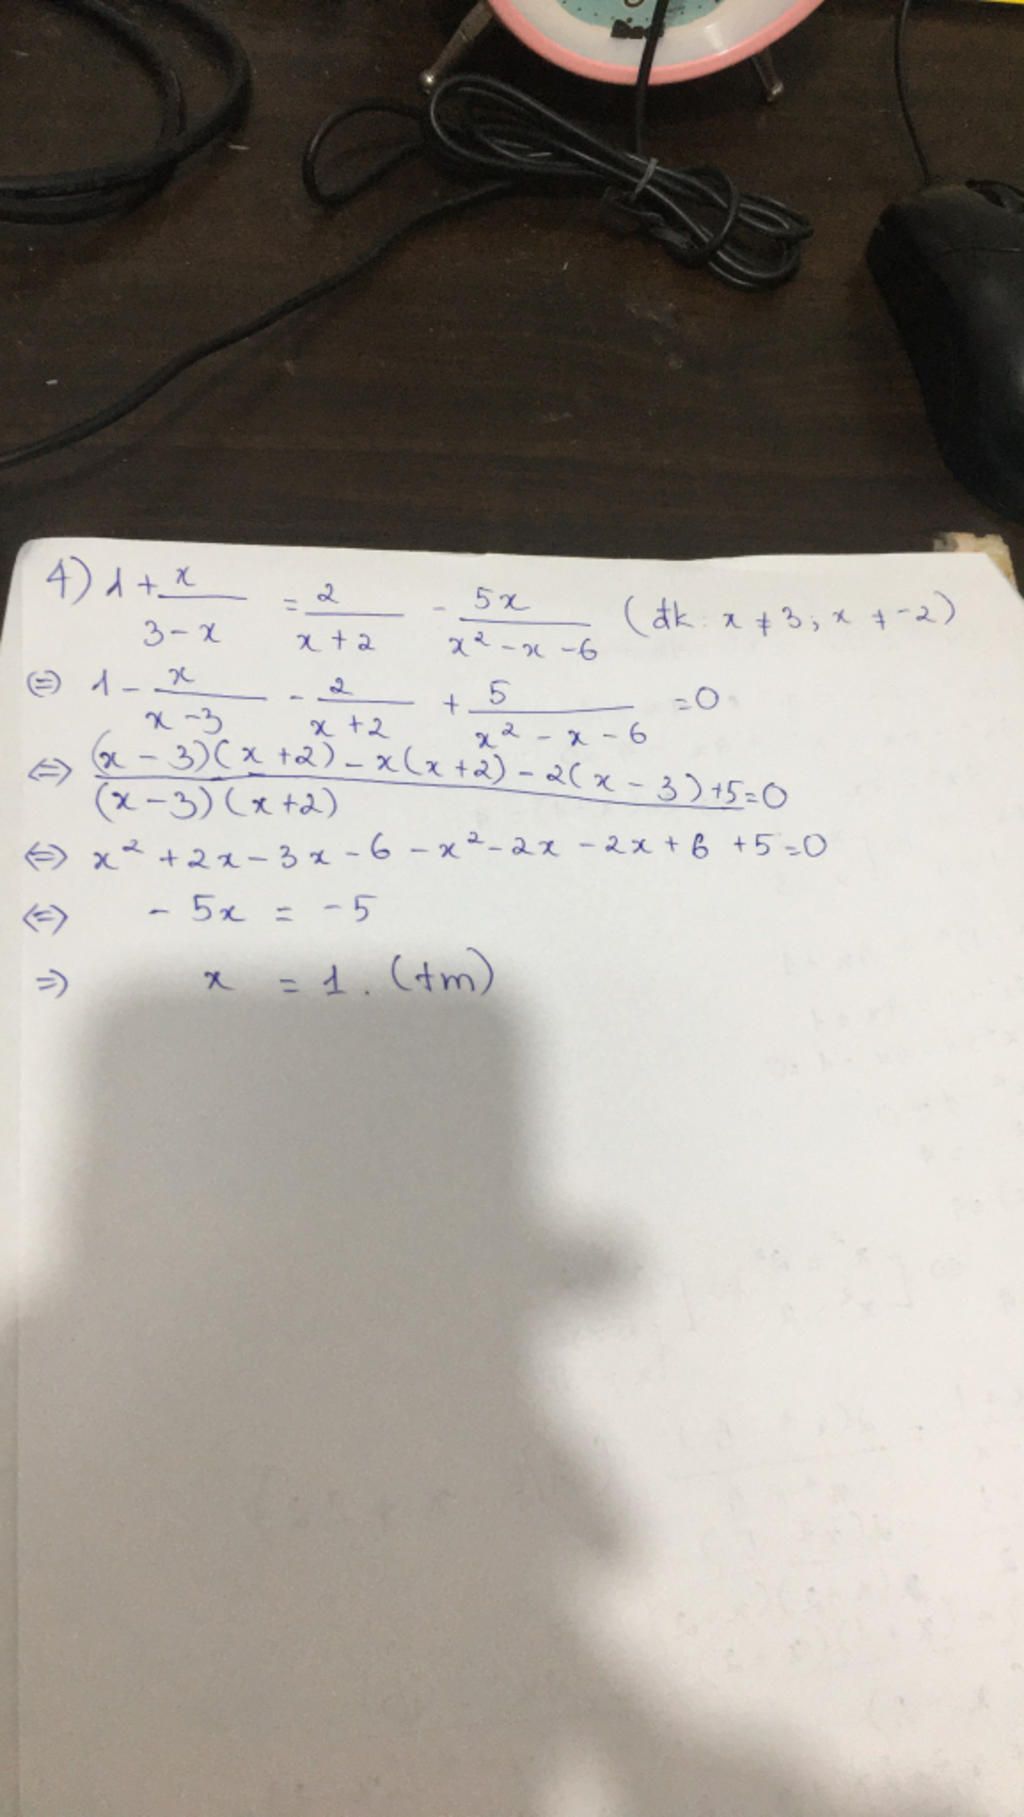 4) 1 + x/(3 - x) = 2/(x + 2) - 5x/(x² - x - 6) (đk: x ≠ 3; x ≠ -2)
(=) 1 - x/(x - 3) - 2/(x + 2) + 5/(x² - x - 6) = 0
<=> ((x - 3)(x + 2) - x(x + 2) - 2(x - 3) + 5)/((x - 3)(x + 2)) = 0
<=> x² + 2x - 3x - 6 - x² - 2x - 2x + 6 + 5 = 0
<=> - 5x = -5
=> x = 1. (tm)